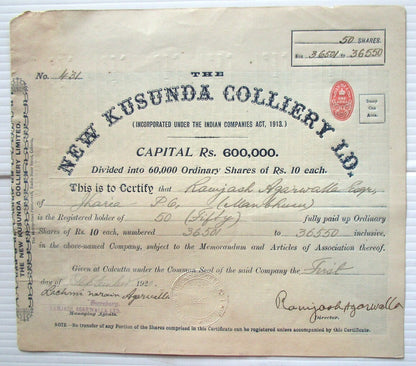 50 SHARES.
Nos 36501 to 36550
No. 431
THE
NEW KUSUNDA COLLIERY LD.
(INCORPORATED UNDER THE INDIAN COMPANIES ACT, 1913.)
CAPITAL Rs. 600,000.
Divided into 60,000 Ordinary Shares of Rs. 10 each.
This is to Certify that Ramjash Agarwalla Esqr,
of Jharia P.O, (Manbhum)
is the Registered holder of 50 (Fifty) fully paid up Ordinary
Shares of Rs. 10 each, numbered 36501 to 36550 inclusive,
in the above-named Company, subject to the Memorandum and Articles of Association thereof.
Given at Calcutta under the Common Seal of the said Company the First
day of September 192
Lachmi narain Agarwalla
Secretary.
Managing Agents.
Ramjash Agarwalla
Director.
NOTE.—No transfer of any Portion of the Shares comprised in this Certificate can be registered unless accompanied by this Certificate.
THE NEW KUSUNDA COLLIERY LIMITED